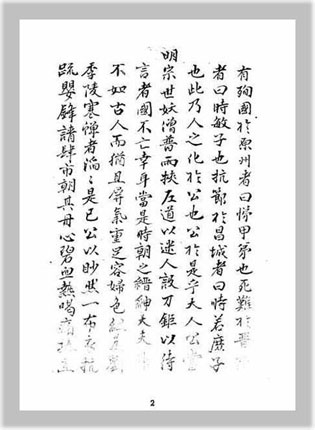 有殉國於原州者曰悌甲第也死難於晋
者曰時敏子也抗節於昌城者曰時若庶子
也此乃人之化於公也公於是乎夫人公當
明宗世妖僧普雨挾左道以迷人設刀鉅以待
言者國不亡幸耳當是時朝之縉紳大夫
不如古人而猶且屏氣重足容婦色
季陵寒蟬者滔〻是已公以眇然一布衣抗
疏嬰鋒諸肆市朝其丹心碧血熱
2